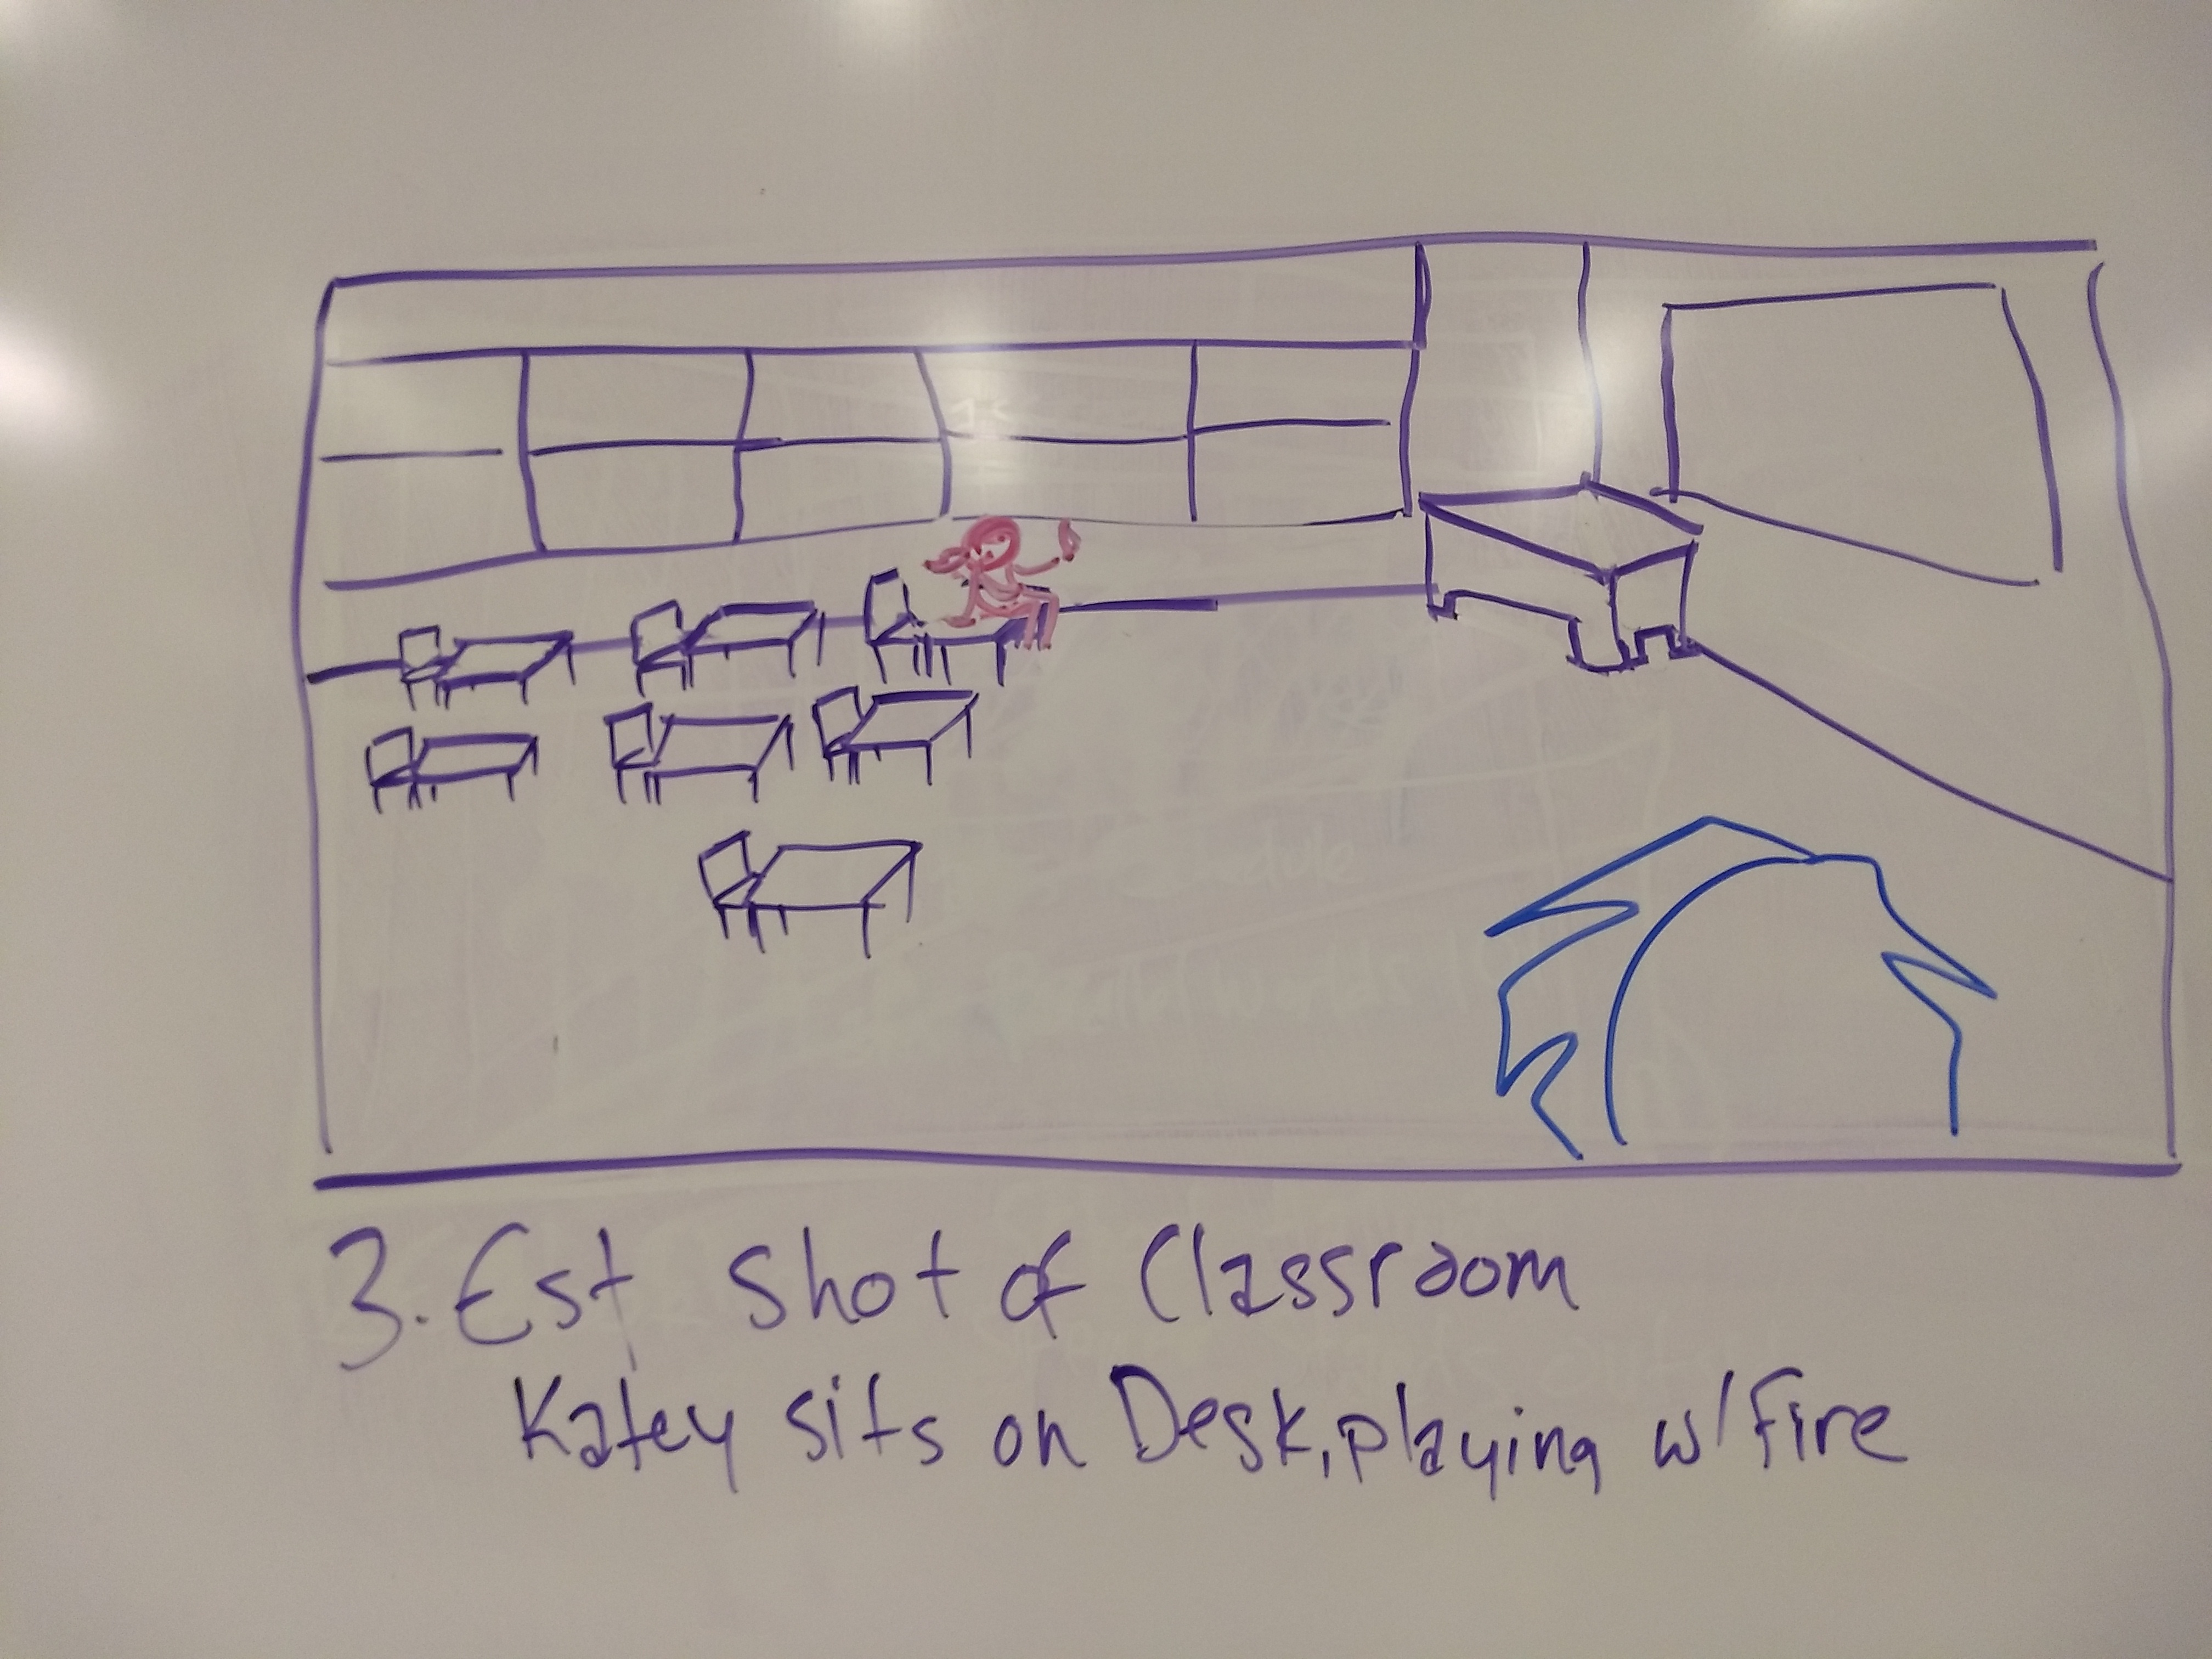 3. Est shot of Classroom
Katey sits on Desk, playing w/ fire